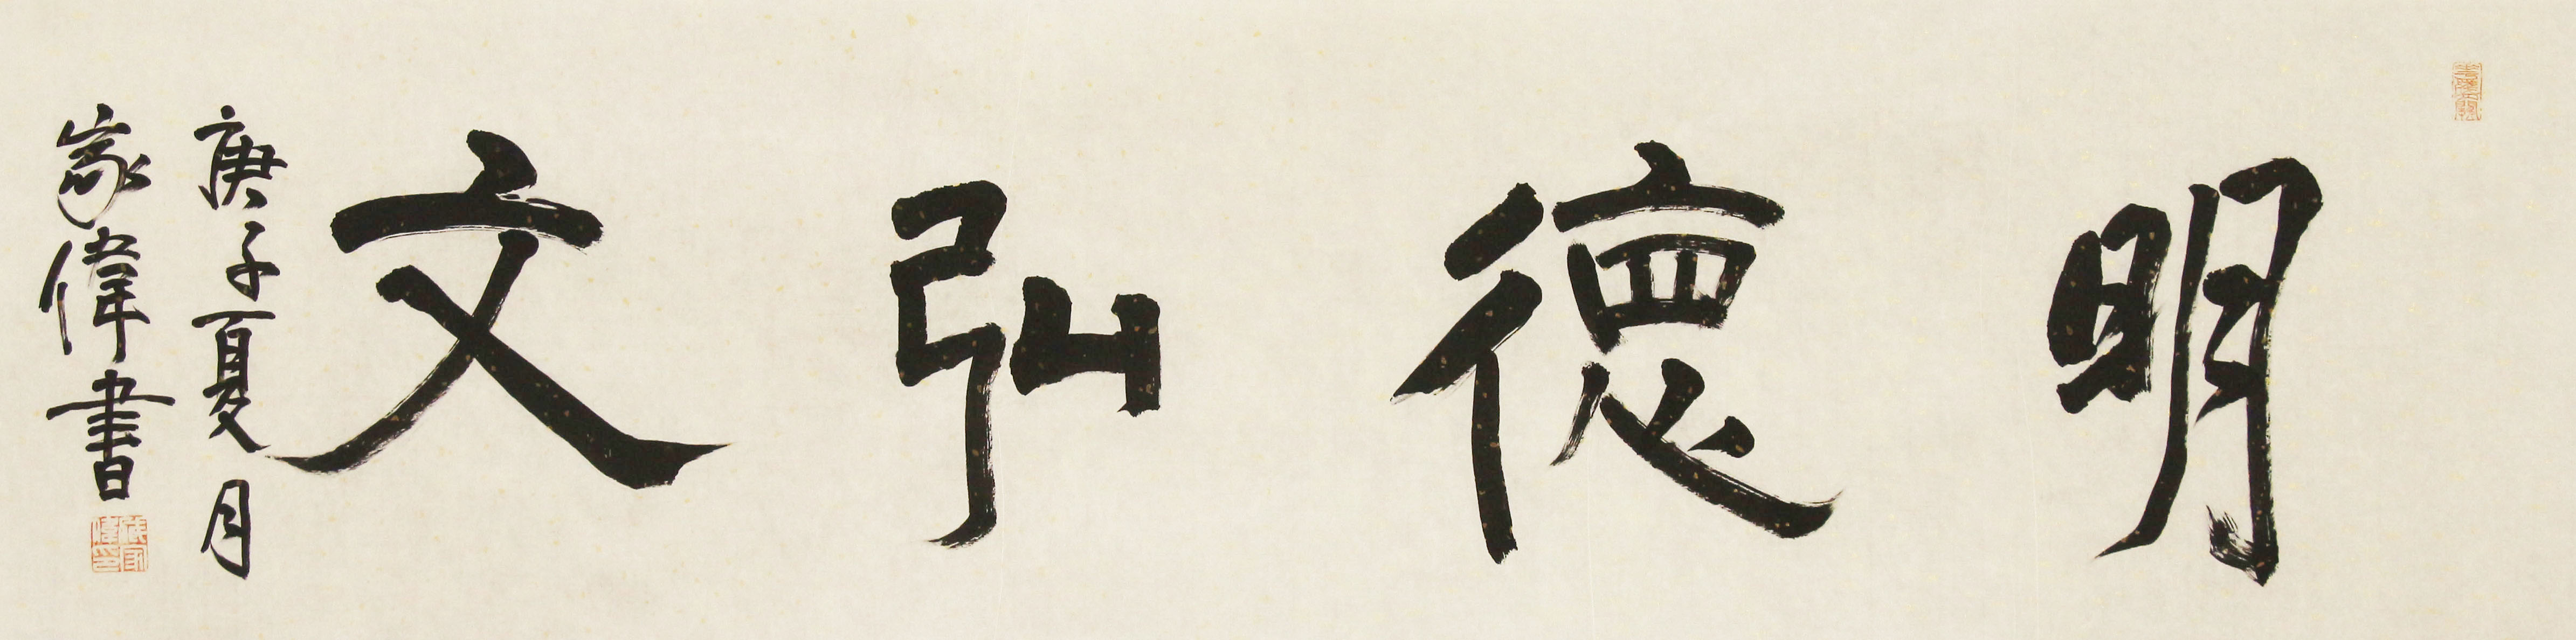 明德弘文
庚子夏月
家偉書